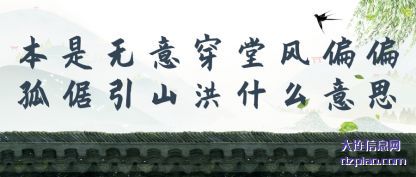 本是无意穿堂风偏偏
孤倨引山洪什么意思
大连信息网
dzpiao.com